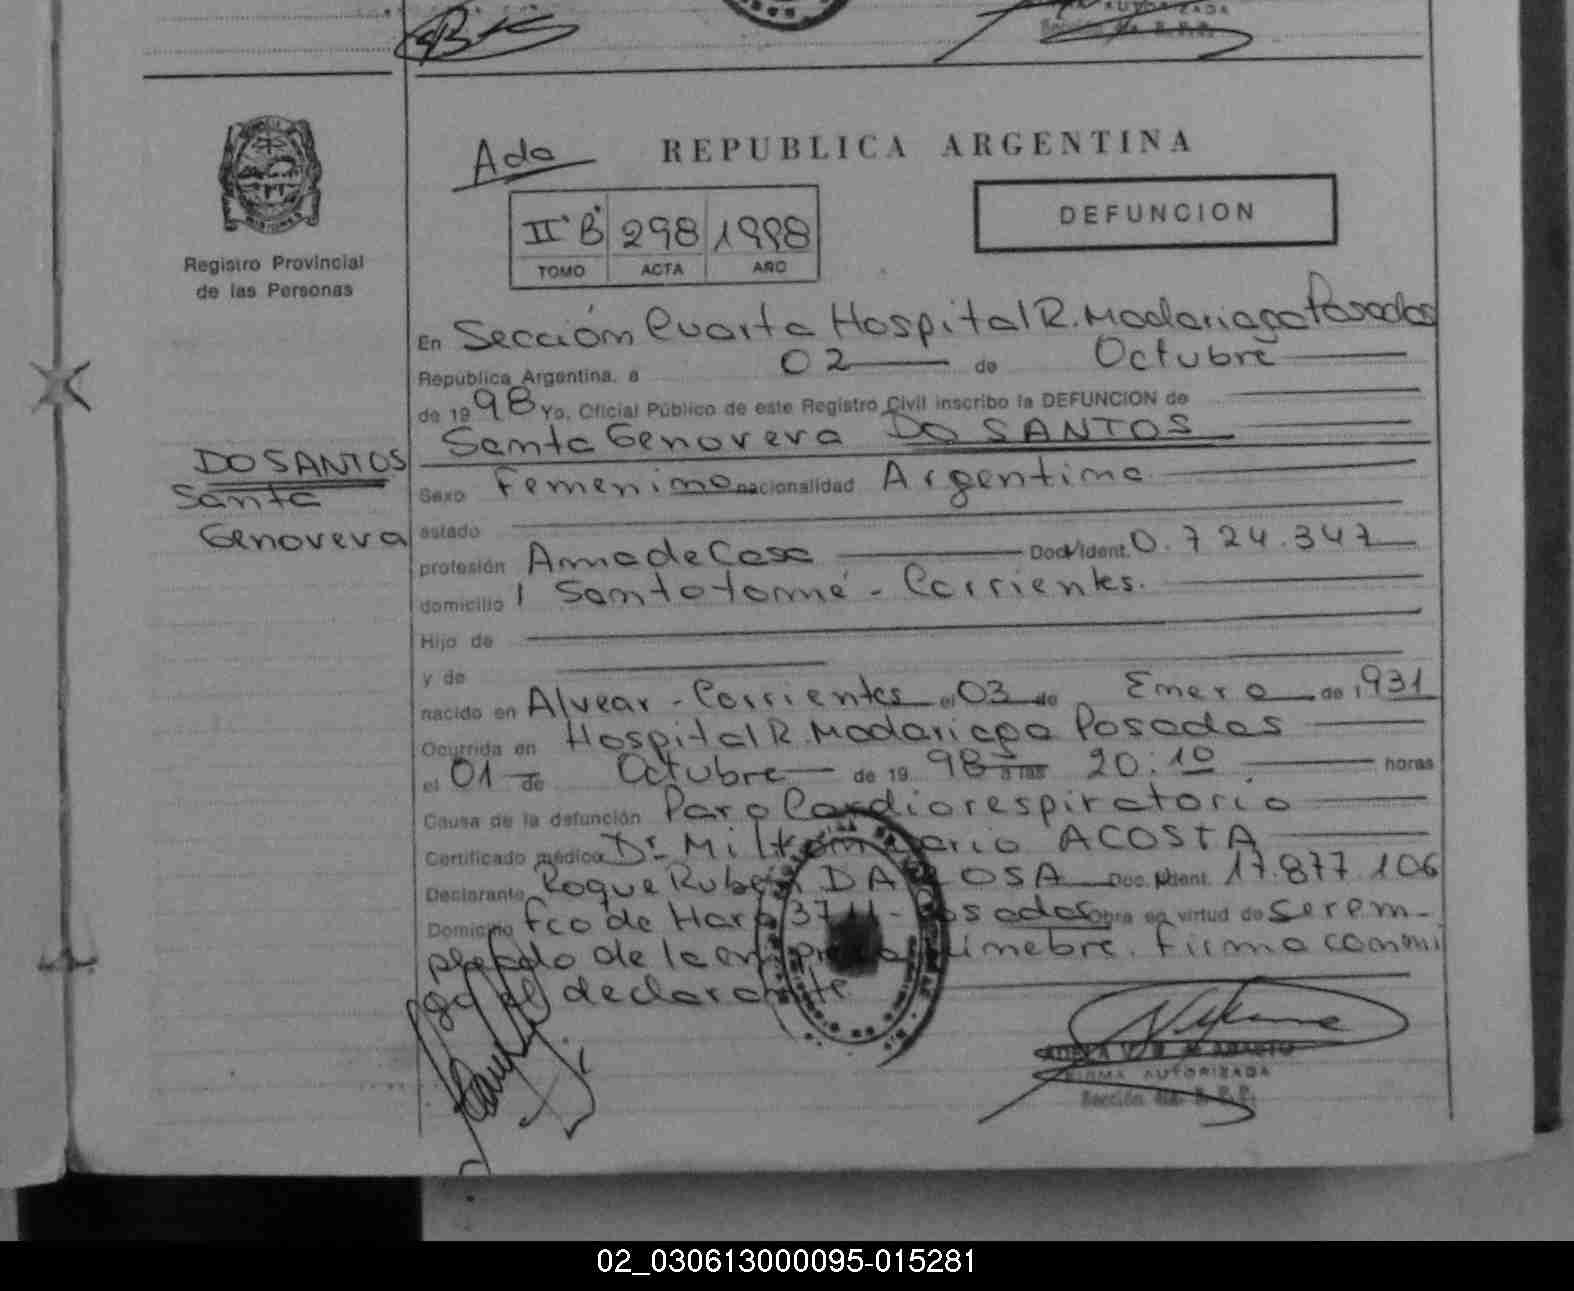 AUTORIZADA
Sección 4ta. R.P.P.
Registro Provincial
de las Personas
Ada
REPUBLICA ARGENTINA
IIº B 298 1998
TOMO ACTA AÑO
DEFUNCION
En Sección Cuarta Hospital R. Madariaga Posadas
República Argentina, a 02 de Octubre
de 1998 Yo, Oficial Público de este Registro Civil inscribo la DEFUNCION de
Santa Genovera DO SANTOS
DO SANTOS
Santa
Genovera
Sexo Femenino nacionalidad Argentina
estado
profesión Ama de Casa Doc. Ident. 0.724.347
domicilio Santo tomé - Corrientes.
Hijo de
y de
nacido en Alvear - Corrientes el 03 de Enero de 1931
Ocurrida en Hospital R. Madariaga Posadas
el 01 de Octubre de 1998 a las 20:10 horas
Causa de la defunción Paro Cardiorespiratorio
Certificado médico Dr. Milton Mario ACOSTA
Declarante Roque Rubén DA ROSA Doc. Ident. 17.877.106
Domicilio Fco de Haro 3711 - Posadas Obra en virtud de ser em-
pleado de la empresa fúnebre. Firma conmi
go el declarante
FIRMA AUTORIZADA
Sección 4ta. R.P.P.
02_030613000095-015281